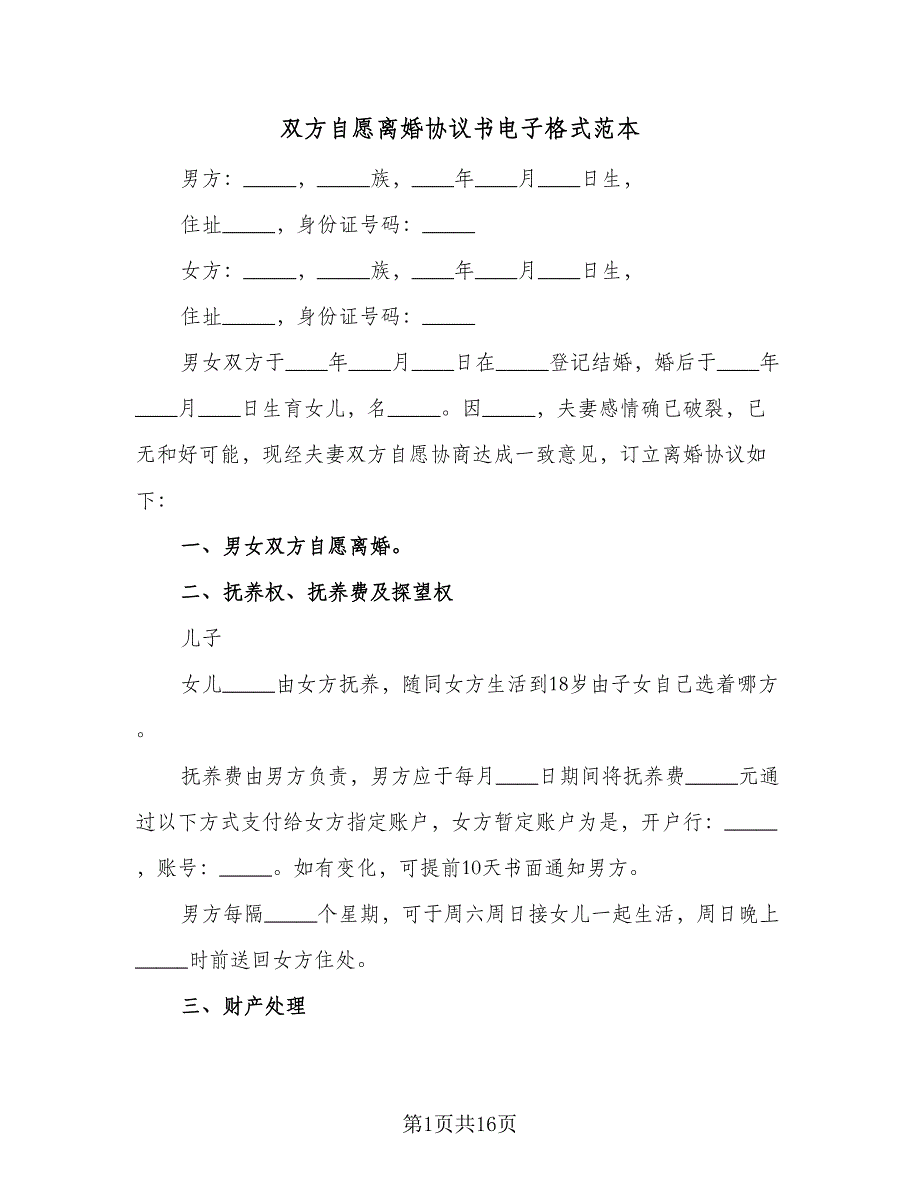 双方自愿离婚协议书电子格式范本
男方：_____，_____族，____年____月____日生，
住址_____，身份证号码：_____
女方：_____，_____族，____年____月____日生，
住址_____，身份证号码：_____
男女双方于____年____月____日在_____登记结婚，婚后于____年
____月____日生育女儿，名_____。因_____，夫妻感情确已破裂，已
无和好可能，现经夫妻双方自愿协商达成一致意见，订立离婚协议如
下：
一、男女双方自愿离婚。
二、抚养权、抚养费及探望权
儿子
女儿_____由女方抚养，随同女方生活到18岁由子女自己选着哪方
。
抚养费由男方负责，男方应于每月____日期间将抚养费_____元通
过以下方式支付给女方指定账户，女方暂定账户为是，开户行：_____
，账号：_____。如有变化，可提前10天书面通知男方。
男方每隔_____个星期，可于周六周日接女儿一起生活，周日晚上
_____时前送回女方住处。
三、财产处理
第1页共16页